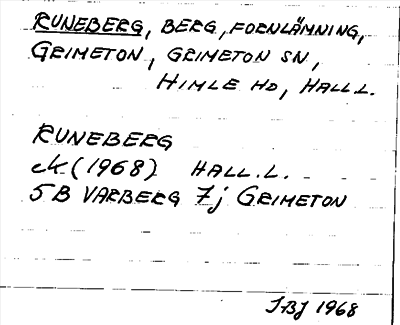 RUNEBERG, BERG, FORNLÄMNING,
GRIMETON, GRIMETON SN,
HIMLE HD, HALL.L.
RUNEBERG
ek (1968) HALL.L.
5B VARBERG 7j GRIMETON
JBJ 1968